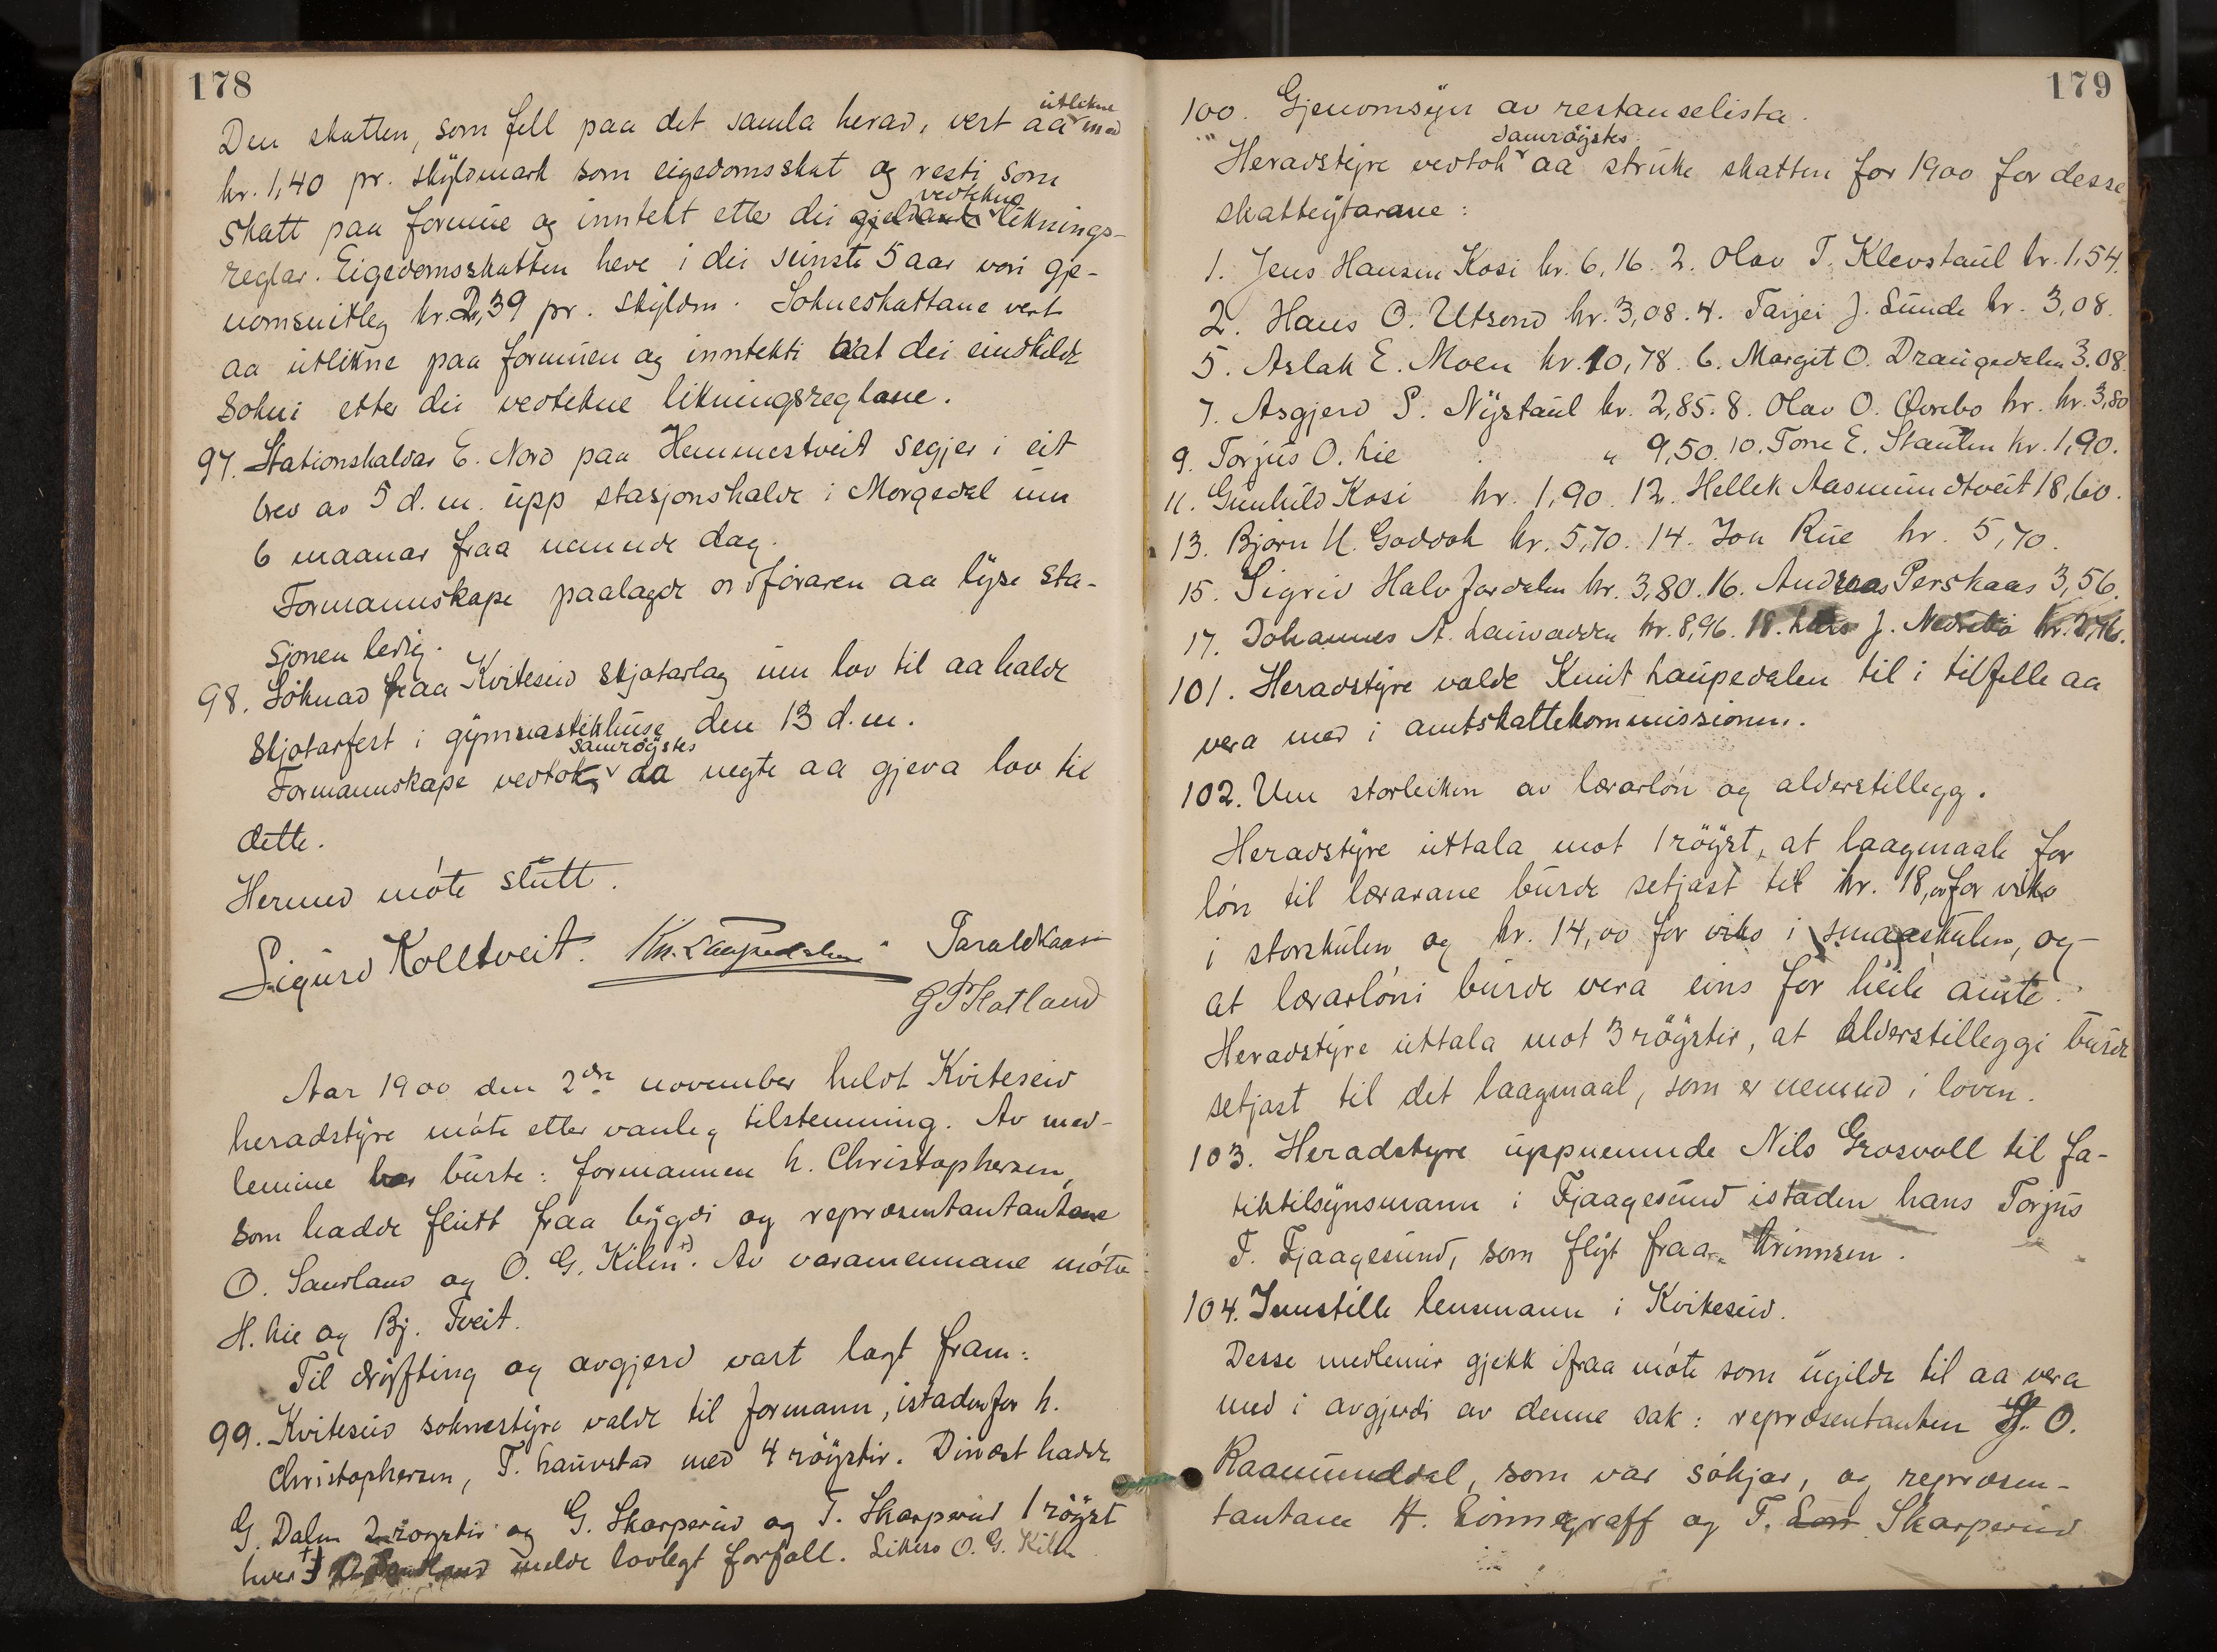 178
Den skatten, som fell paa det samla herad, vert aa utlikne med
kr. 1,40 pr. skyldmark som eigedomsskat og resti som
skatt paa formue og inntekt etter dei gjeldande vedtekne liknings-
reglar. Eigedomsskatten heve i dei seinste 5 aar vori gje-
nomsnitleg kr. 2,39 pr. skyldm. Sokneskattane vert
aa utlikne paa formuen og inntekti aat dei einskilde
Sokni etter dei vedtekne likningsreglane.
97. Stationshaldar E. Nord paa Hemmestveit segjer i eit
brev av 5 d. m. upp stasjonshalde i Morgedal um
6 maanar fraa nemnde dag.
Formannskape paalagde ordføraren aa lyse sta-
sjonen ledig.
98. Søknad fraa Kviteseid skjotarlag um lov til aa halde
Skjotarfest i gymnastikhuse den 13 d. m.
Formannskape vedtok samrøystes aa negte aa gjeva lov til
dette.
Hermed møte slutt.
Sigurd Kolltveit. Kn. Laupedalen. Taraldkaasen
G T Hatland
Aar 1900 den 2dre november heldt Kviteseid
heradstyre møte etter vanleg tilstemning. Av med-
lemine burte: formannen L. Christophersen,
som hadde flutt fraa bygdi og repræsentantantane
O. Saurland og O. G. Kilen +). Av varamennane møtte
H. Lie og Bj. Tveit.
Til drøfting og avgjerd vart lagt fram:
99. Kviteseid soknestyre valde til formann, istadenfor L.
Christophersen, T. Lauvstad med 4 røystir. Dinæst hadde
G. Dalen 2 røystir og G. Skarperud og T. Skarperud 1 røyst
hver +) melde lovlegt forfall. Likeso O. G. Kilen
179
100. Gjenomsyn av restanselista.
Heradstyre vedtok samrøystes aa struke skatten for 1900 for desse
skatteytarane:
1. Jens Hansen Kosi kr. 6,16. 2. Olav T. Klevstaul kr. 1,54.
2. Hans O. Utsond kr. 3,08. 4. Tarjei J. Sunde kr. 3,08.
5. Aslak E. Moen kr. 10,78. 6. Margit O. Draugedalen 3.08.
7. Asgjerd S. Nystaul kr. 2,85. 8. Olav O. Øvrebø kr. kr. 3,80
9. Torjus O. Lie " 9,50. 10. Tone E. Staulen kr. 1,90.
11. Gunhild Kosi kr. 1,90. 12. Hellek Aasmundtveit 18,60.
13. Bjørn H. Godvok kr. 5,70. 14. Jon Rue kr. 5,70.
15. Sigrid Halv Jordalen kr. 3,80. 16. Andreas Perskaas 3,56.
17. Johannes A. kr. 8,96. 18. Lars J. Nedrebø kr. 2,76.
101. Heradstyre valde Knut Laupedalen til i tilfelle aa
vera med i amtskattekommissionen.
102. Um storleiken av lærarløn og alderstillegg.
Heradstyre uttala mot 1 røyst, at laagmaale for
løn til lærarane burde setjast til kr. 18,00 for viko
i storskulen og kr. 14,00 for viko i smaaskulen, og
at lærarløni burde vera eins for heile amte.
Heradstyre uttala mot 3 røystir, at alderstilleggi burde
setjast til det laagmaal, som er nemnd i loven.
103. Heradstyre uppnemnde Nils Grosvoll til fa-
tiktilsynsmann i Fjaagesund istaden hans Torjus
T. Fjaagesund, som flyt fraa krinnsen.
104. Innstille lensmann i Kviteseid.
Desse medlemir gjekk ifraa møte som ugilde til aa vera
med i avgjerdi av denne sak: repræsentanten G. O.
Raamunddal, som var søkjar, og repræsen-
tantane H. Linnegraff og T. Skarperud